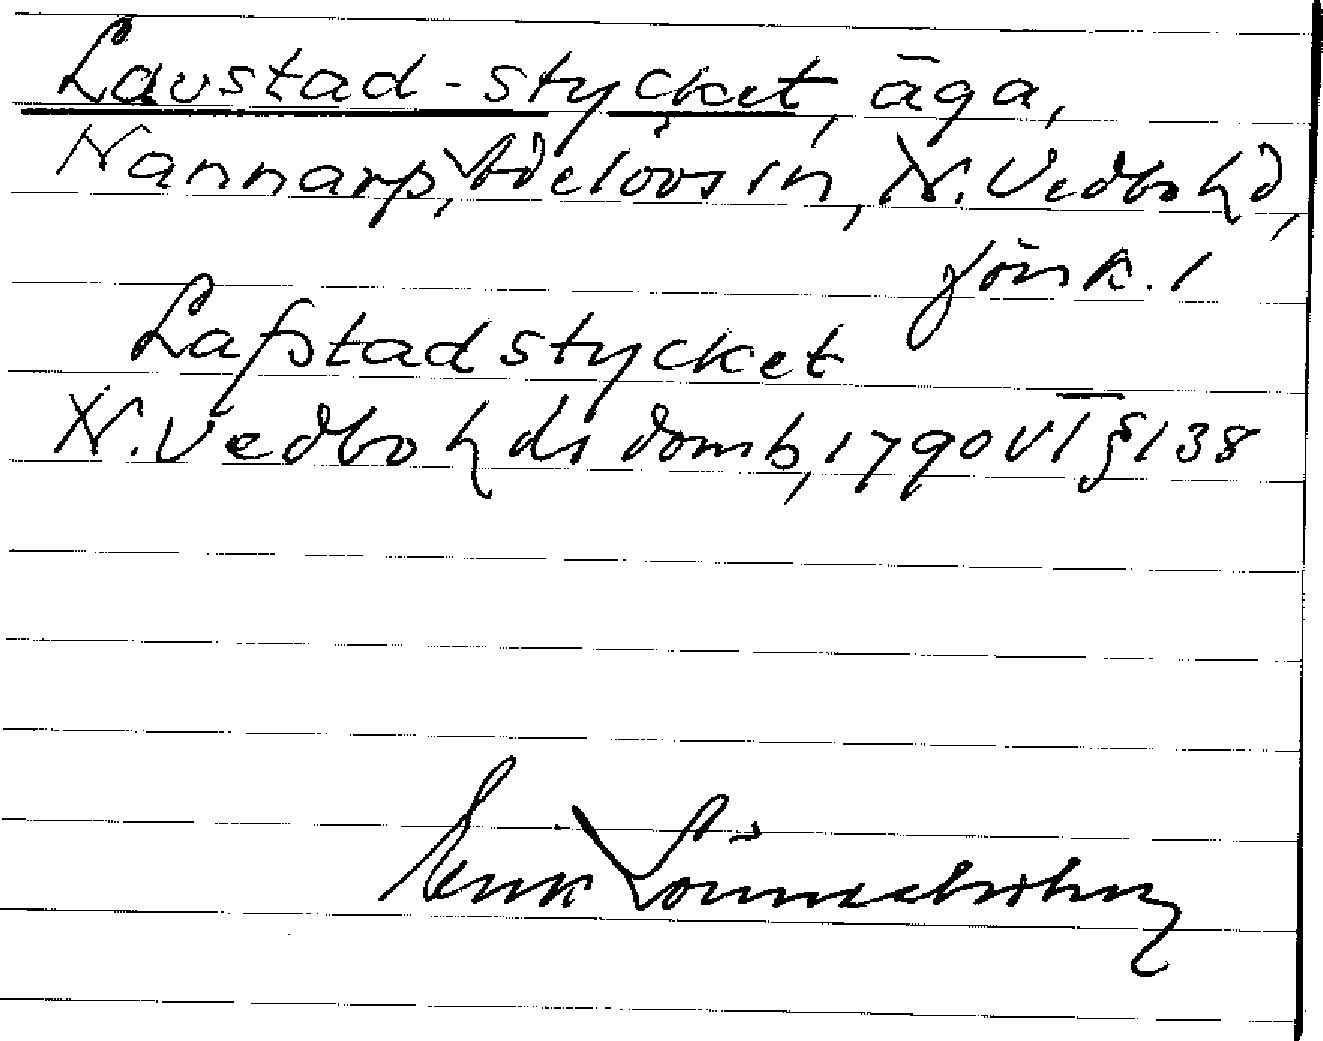 Lavstad-stycket, äga,
Nannarp, Adelövs sn, N. Vedbo hd,
Jönk. l
Lafstadstycket
N. Vedbo hds domb, 1790 VI § 138
Erik